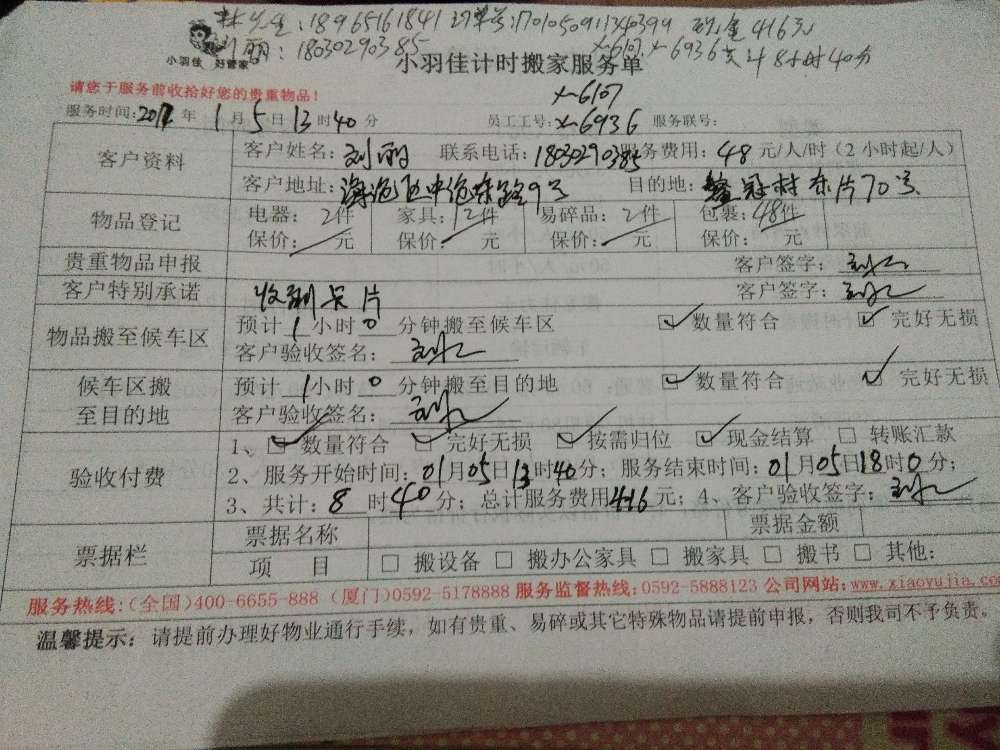 林先生:18965161841 订单号:170105091340399 现金416元
刘丽:18030290385 X-6107 X-6936 共计8小时40分
小羽佳 好管家
小羽佳计时搬家服务单
请您于服务前收拾好您的贵重物品！
X-6107
服务时间:2017年1月5日13时40分 员工工号:X-6936 服务联号:
客户资料 客户姓名:刘丽 联系电话:18030290385 服务费用:48元/人/时（2小时起/人）
客户地址:海沧区中沧东路9号 目的地:鳌冠村东片70号
物品登记 电器:2件 家具:12件 易碎品:2件 包裹:48件
保价: 元 保价: 元 保价: 元 保价: 元
贵重物品申报 客户签字:
客户特别承诺 收刷卡片 客户签字:
物品搬至候车区 预计1小时0分钟搬至候车区 ☑数量符合 ☑完好无损
客户验收签名:
候车区搬至目的地 预计1小时0分钟搬至目的地 ☑数量符合 ☑完好无损
客户验收签名:
验收付费 1、☑数量符合 ☑完好无损 ☑按需归位 ☑现金结算 □转账汇款
2、服务开始时间:01月05日13时40分；服务结束时间:01月05日18时0分；
3、共计:8时40分；总计服务费用416元；4、客户验收签字:
票据栏 票据名称 票据金额
项 目 □搬设备 □搬办公家具 □搬家具 □搬书 □其他:
服务热线:(全国)400-6655-888 (厦门)0592-5178888 服务监督热线:0592-5888123 公司网站:www.xiaoyujia.co
温馨提示:请提前办理好物业通行手续，如有贵重、易碎或其它特殊物品请提前申报，否则我司不予负责。